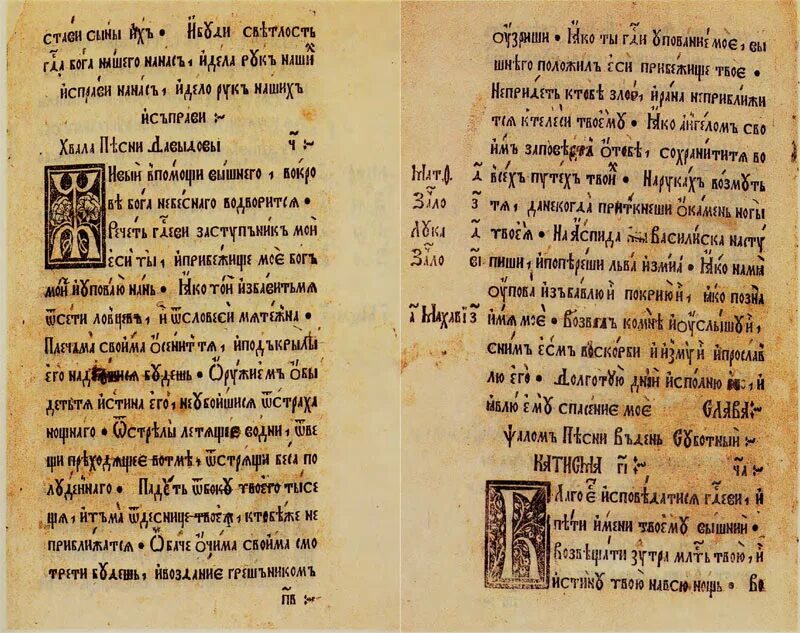 стави сыны их • И буди свѣтлость
гд҃а бога нашего на насъ, и дела рук наши
исправи на насъ, и дело рук нашихъ
исъправи :~
Хвала Пѣсни Давыдовы ч҃ :~
Живый в помощи вышнего, в окро
вѣ бога небеснаго водворится •
Речеть гд҃еви заступъник мой
еси ты, и прибежище мое богъ
мой и уповаю нань • Ꙗко той избавить мя
ѿ сети ловцевъ, и ѿ словеси мятежна •
Плечама своима осенит тя, и подъ крылы
его надѣяися будешь • Оружием обы
детъ тя истина его, не убоишися ѿ страха
нощнаго • Ѿ стрелы летящие во дни, ѿ ве
щи преходящее во тмѣ, ѿ стрящи беса по
луденнаго • Падеть ѿ боку твоего тысе
щя, и тъма ѿ деснице твоея, к тобѣ же не
приближатся • Обаче очима своима смо
трети будешь, и воздание грешъником
п҃в :~
оузриши • Ꙗко ты гд҃и упование мое, вы
шнѣго положил еси прибежище твое •
Не придеть к тобѣ злое, и рана не приближи
тся к телеси твоему • Ꙗко ангелом сво
им заповѣсть о тобѣ, сохранити тя во
Мат.ѳ. д҃ всѣх путех твой • На руках возмуть
Зачало з҃ тя, да некогда приткнеши о камень ногы
Лука д҃ твоея • На Аспида и Василиска насту
Зачало в҃і пиши, и попѣреши льва и змиа • Ꙗко на мя
оупова избавлю и покрию и, ꙗко позна
имя мое • Возвал ко мнѣ и оуслышу и,
с ним есмъ в оскорби и измуи и прослав
лю его • Долготую днии исполню и, и
ꙗвлю ему спасение мое Слава :~
Ѱалом Пѣсни в день Суботный :~
Катисма г҃і :~ ч҃а :~
Благо е исповѣдатися гд҃еви, и
пѣти имени твоему вышнии •
Возвѣщати зутра млть твою, и
истину твою на всю нощь • Во